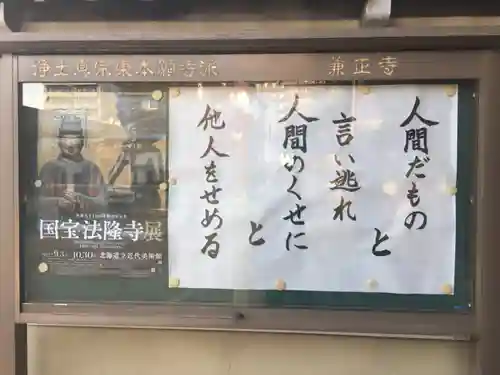 浄土真宗東本願寺派
兼正寺
人間だもの
と
言い逃れ
人間のくせに
と
他人をせめる
国宝法隆寺展
北海道立近代美術館